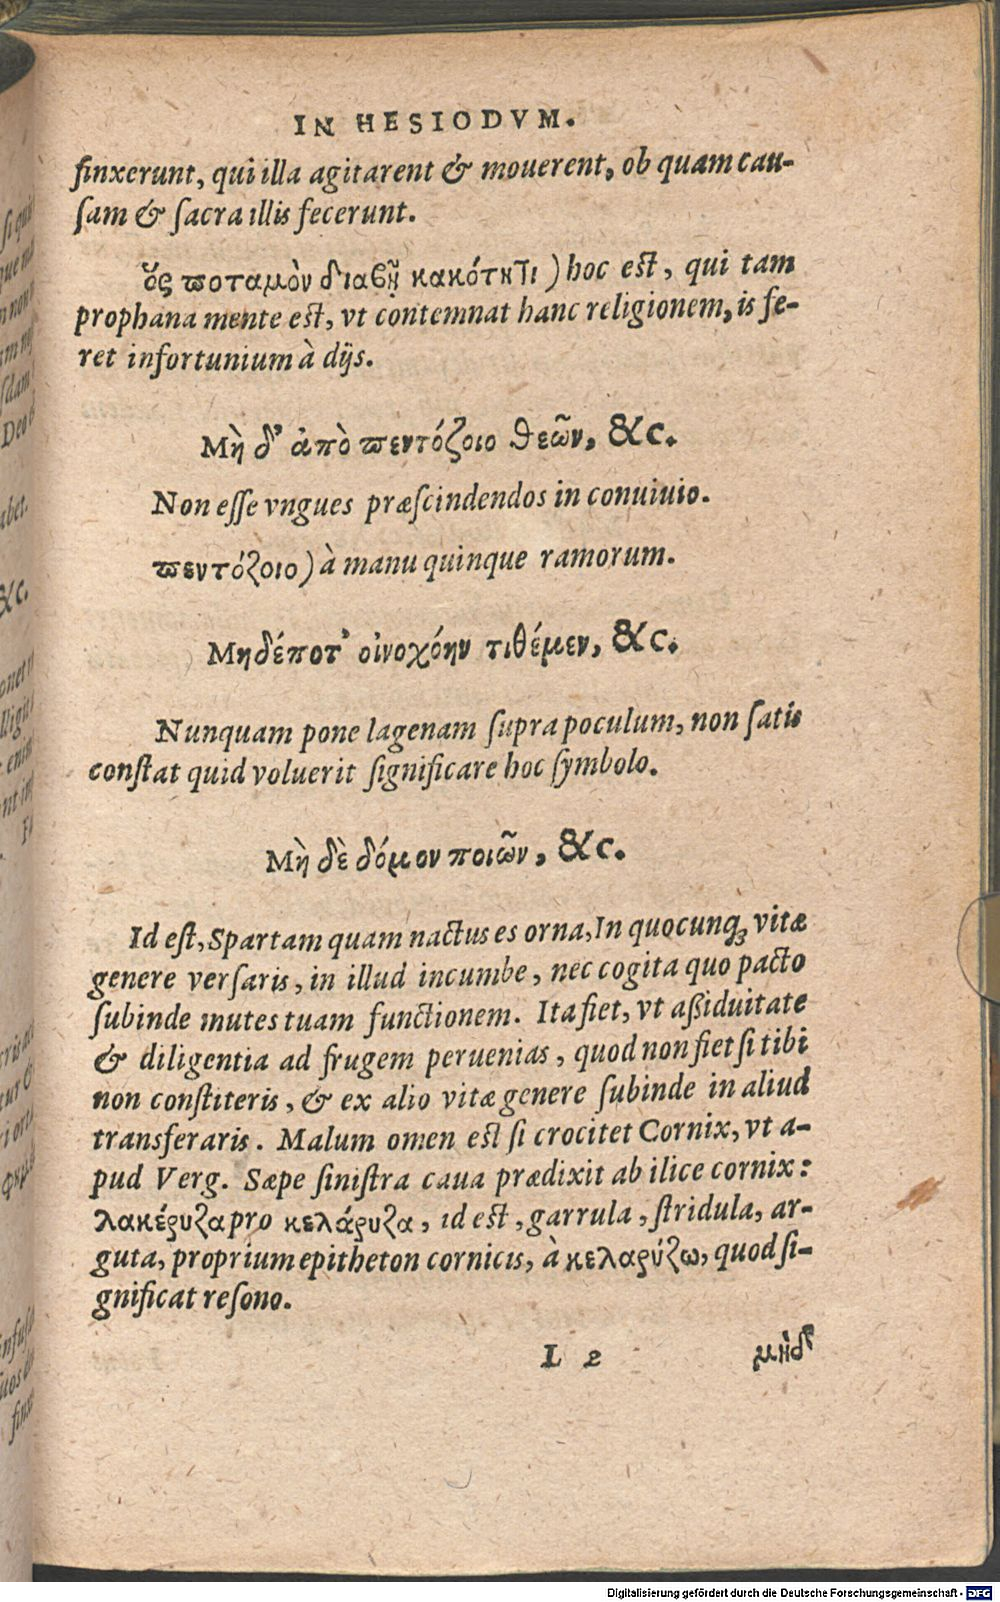 IN HESIODVM.
finxerunt, qui illa agitarent & mouerent, ob quam cau-
ſam & ſacra illis fecerunt.
ὅς ποταμὸν διαβῇ κακότητι) hoc eſt, qui tam
prophana mente eſt, vt contemnat hanc religionem, is fe-
ret infortunium à dijs.
Μὴ δ᾽ ἀπὸ πεντόζοιο θεῶν, &c.
Non eſſe vngues præſcindendos in conuiuio.
πεντόζοιο) à manu quinque ramorum.
Μηδέποτ᾽ οἰνοχόην τιθέμεν, &c.
Nunquam pone lagenam ſupra poculum, non ſatis
conſtat quid voluerit ſignificare hoc ſymbolo.
Μὴ δὲ δόμον ποιῶν, &c.
Id eſt, Spartam quam nactus es orna, In quocunqꝫ vitæ
genere verſaris, in illud incumbe, nec cogita quo pacto
ſubinde mutes tuam functionem. Ita fiet, vt aßiduitate
& diligentia ad frugem peruenias, quod non fiet ſi tibi
non conſtiteris, & ex alio vitæ genere ſubinde in aliud
transferaris. Malum omen eſt ſi crocitet Cornix, vt a-
pud Verg. Sæpe ſiniſtra caua prædixit ab ilice cornix:
λακέρυζα pro κελάρυζα, id eſt, garrula, ſtridula, ar-
guta, proprium epitheton cornicis, à κελαρύζω, quod ſi-
gnificat reſono.
L 2 μηδ᾽
Digitalisierung gefördert durch die Deutsche Forschungsgemeinschaft - DFG